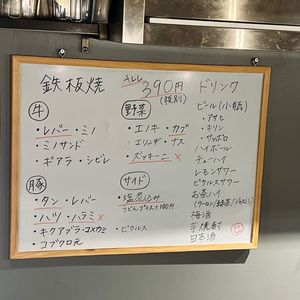 鉄板焼 ALL 390円(税別)
牛
・レバー・ミノ
・ミノサンド
・ギアラ・シビレ
豚
・タン・レバー
・ハツ・ハラミ×
・キクアブラ・コメカミ
・コブクロ元
野菜
・エノキ・カブ
・エリンギ・ナス
・ズッキーニ×
サイド
・塩煮込み
うどんプラス+100円
・ピクルス
ドリンク
ビール(小瓶)
・アサヒ
・キリン
・サッポロ
ハイボール
チューハイ
レモンサワー
ピクルスサワー
お茶ハイ
(ウーロン/緑茶/ジャスミン)
梅酒
芋焼酎
日本酒